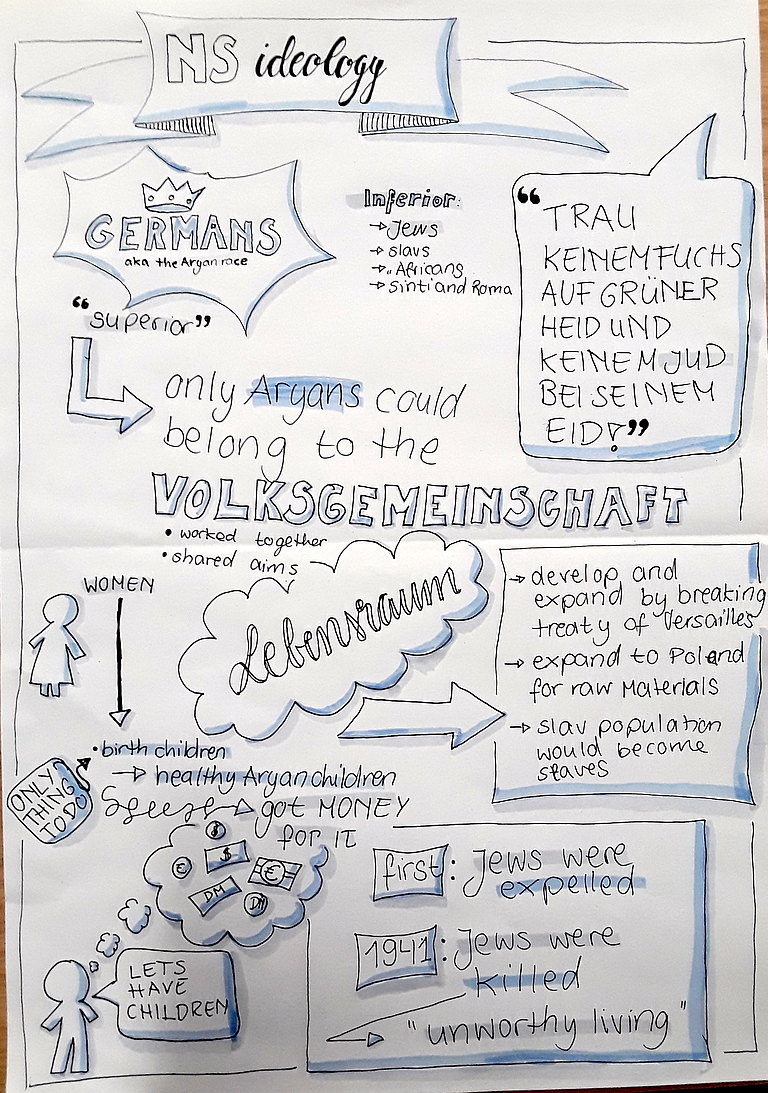 NS ideology
GERMANS
aka the Aryan race
"superior"
Inferior:
→ Jews
→ slavs
→ Africans
→ Sinti and Roma
"TRAU
KEINEM FUCHS
AUF GRÜNER
HEID UND
KEINEM JUD
BEI SEINEM
EID!"
only Aryans could
belong to the
VOLKSGEMEINSCHAFT
• worked together
• shared aims
WOMEN
Lebensraum
→ develop and
expand by breaking
treaty of Versailles
→ expand to Poland
for raw Materials
→ slav population
would become
slaves
• birth children
→ healthy Aryan children
→ got MONEY
for it
ONLY
THING
TO DO
$
$
€
€
DM
DM
LETS
HAVE
CHILDREN
first: Jews were
expelled
1941: Jews were
killed
→ "unworthy living"